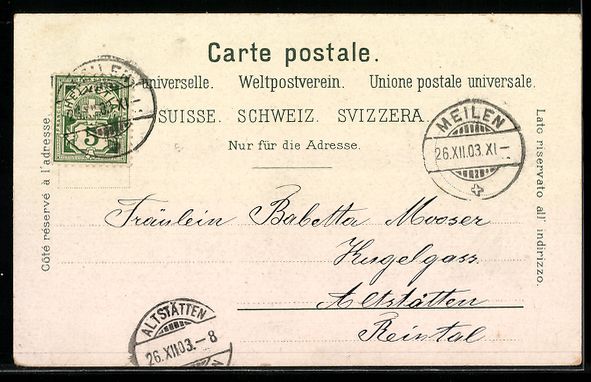 Carte postale.
universelle. Weltpostverein. Unione postale universale.
SUISSE. SCHWEIZ. SVIZZERA.
Nur für die Adresse.
Côté réservé à l'adresse.
Lato riservato all' indirizzo.
HELVETIA
5
MEILEN
26.XII.03.XI–
Fräulein Babetta Mooser
Kugelgass
Altstätten
Reintal
ALTSTÄTTEN
26.XII.03.–8